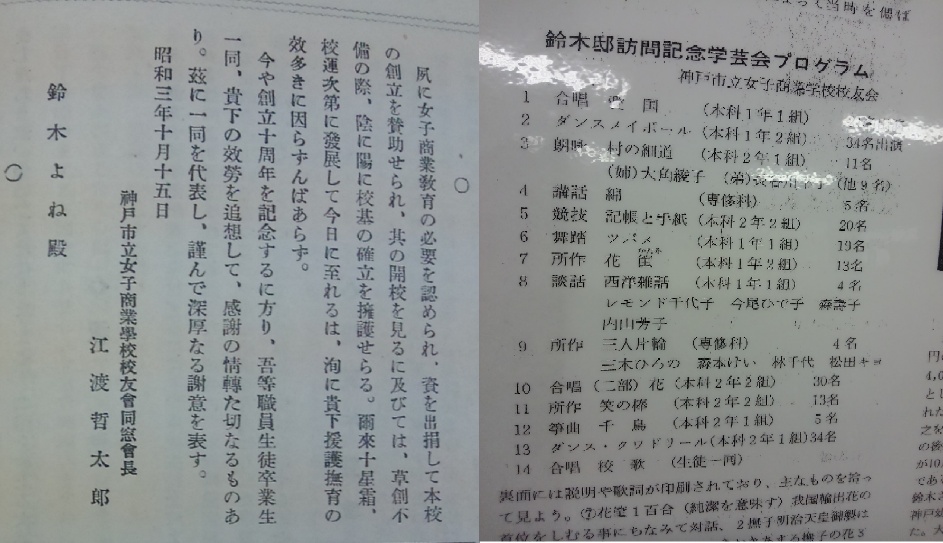 ○
夙に女子商業敎育の必要を認められ、資を出捐して本校
の創立を賛助せられ、其の開校を見るに及びては、草創不
備の際、陰に陽に校基の確立を擁護せらる。爾來十星霜、
校運次第に發展して今日に至れるは、洵に貴下援護撫育の
效多きに因らずんばあらず。
今や創立十周年を記念するに方り、吾等職員生徒卒業生
一同、貴下の效勞を追想して、感謝の情轉た切なるものあ
り。茲に一同を代表し、謹んで深厚なる謝意を表す。
昭和三年十月十五日
神戸市立女子商業學校校友會同窓會長
江渡哲太郎
鈴木よね殿
○
って当時を偲ば
鈴木邸訪問記念学芸会プログラム
神戸市立女子商業学校校友会
1 合唱 国 (本科1年1組)
2 ダンスメイポール (本科1年2組) 34名出演
3 朗詠 村の細道 (本科2年1組) 11名
(姉)大角綾子 (弟) (他9名)
4 講話 綿 (専修科) 5名
5 競技 記帳と手紙 (本科2年2組) 20名
6 舞踏 ツバメ (本科1年1組) 19名
7 所作 花笠 (本科1年2組) 13名
8 談話 西洋雑話 (本科1年1組) 4名
レモンド千代子 今尾ひで子 森壽子
内山芳子
9 所作 三人片輪 (専修科) 4名
三木ひろの 森本けい 林千代 松田キヨ
10 合唱(二部)花 (本科2年2組) 30名
11 所作 笑の棒 (本科2年2組) 13名
12 箏曲 千鳥 (本科2年1組) 5名
13 ダンス・クワドリール (本科2年2組) 34名
14 合唱 校歌 (生徒一同)
裏面には説明や歌詞が印刷されており、主なものを拾っ
て見よう。⑦花笠1百合(純潔を意味す)我国輸出花の
首位をしむる事にちなみて対話、2撫子明治天皇御製に